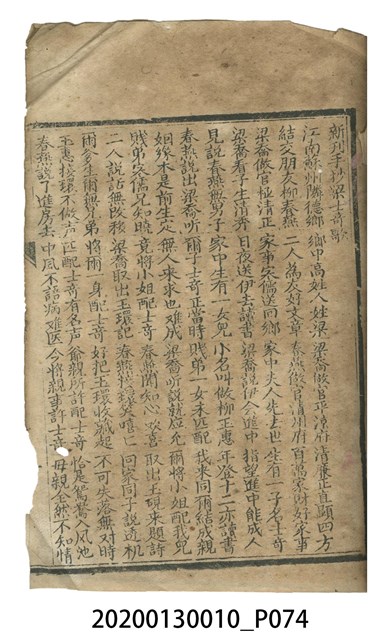 新刊手抄梁士奇歌
江南蘇州隣德鄉 鄉中高姓人姓梁 梁喬做官平凉府 清廉正直顕四方
結交朋友柳春燕 二人為友好文章 春燕做官清州府 百萬家財好家事
梁喬做官極清正 家事宋儒送回鄉 家中夫人先去世 生有一子名士奇
梁喬看了士消奔 日夜送伊去讀書 梁喬說伊会進中 指望進中能成人
見說春燕無男子 家中生有一女兒 小名叫做柳玉惠 年登十二亦讀書
春燕說出梁喬听 爾子士奇正當時 賎弟一女未匹配 我来同爾結成親
姻緣本是前生定 無人来求也难成 梁喬听說就应允 爾將小姐配我兒
賎弟宋儒兄知曉 竟將小姐配士奇 春燕聞知心欢喜 取出玉硯来題詩
二人說話無改移 梁喬取出玉環記 春燕接環笑嘻匕 回家同子說透机
爾爹生爾無兄弟 將爾一身配士奇 好把玉環收藏起 不可失落無对時
玉惠接環不做声 匹配士奇有名声 爺親所許配士奇 恰是鴛鴦入鳳池
春燕說了進房去 中風不語病难医 今將親事許士奇 母親全然不知情
20200130010_P074